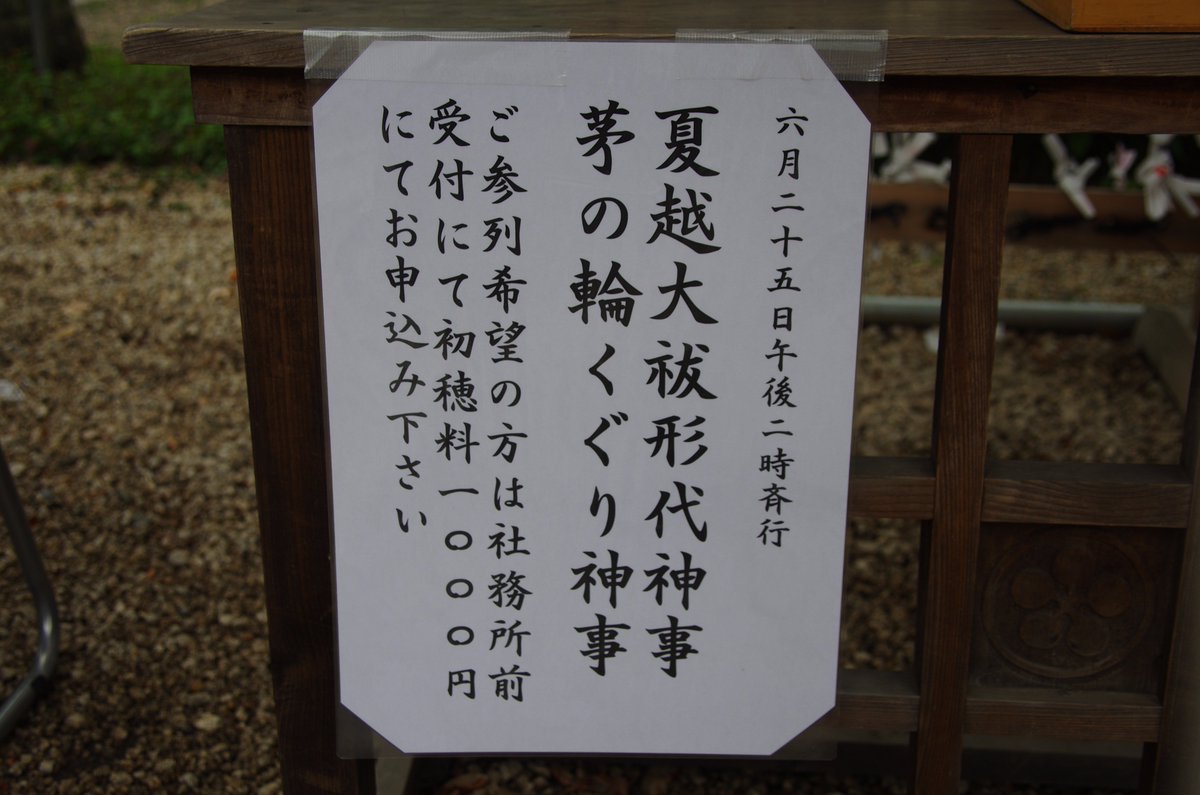 六月二十五日午後二時斉行
夏越大祓形代神事
茅の輪くぐり神事
ご参列希望の方は社務所前
受付にて初穂料一〇〇〇円
にてお申込み下さい